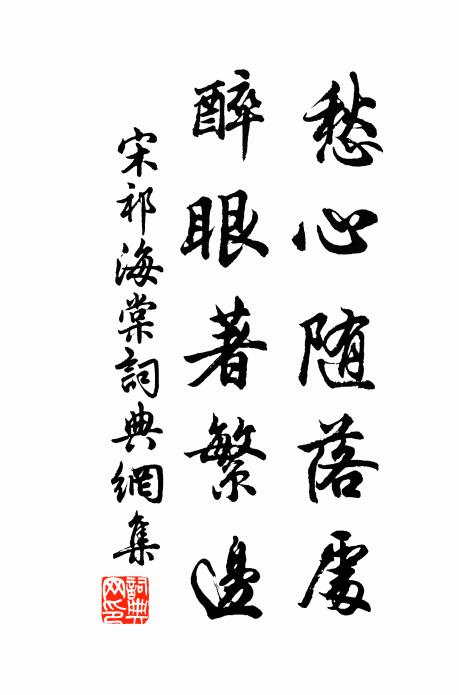 愁心随落處
醉眼著繁邊
宋祁海棠詞典網集
詞典网印